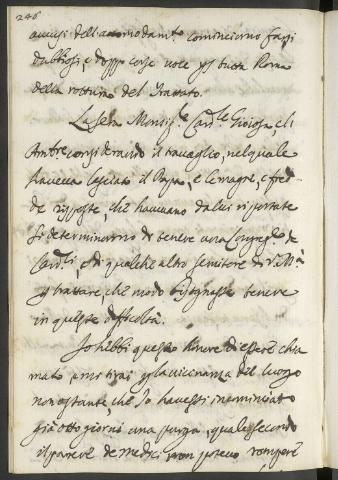 246
auuisi dell'accomodam.to cominciorno farsi
dubbiosi, e doppo corse uoce p[er] tutta Roma
della rottura del Trattato.
La sera Monsig.re Card.le Gioiosa, e li
Amb.re considerando il trauaglio, nel quale
haueua lasciato il Papa, e le magre, e fred-
de risposte, che haueuano da lui riportate
si determinorno di tenere una Congreg.ne de
Card.li, e di qualche altro seruitore di V. M.tà
p[er] trattare, che modo bisognasse tenere
in queste difficoltà.
Io hebbi questo honore di essere chia
mato e mi tirai p[er] la uicinanza del luogo
non ostante, che Io hauessi incominciato
già otto giorni una purga, quale secondo
il parere de medici non poteuo rompere